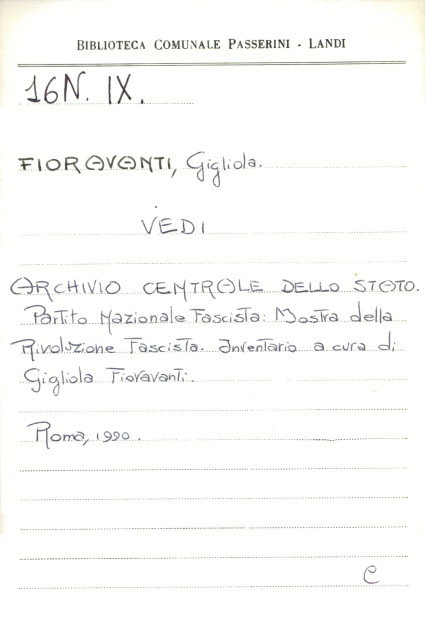 BIBLIOTECA COMUNALE PASSERINI - LANDI
16N. IX.
FIORAVANTI, Gigliola.
VEDI
ARCHIVIO CENTRALE DELLO STATO.
Partito Nazionale Fascista: Mostra della
Rivoluzione Fascista. Inventario a cura di
Gigliola Fioravanti.
Roma, 1990.
C